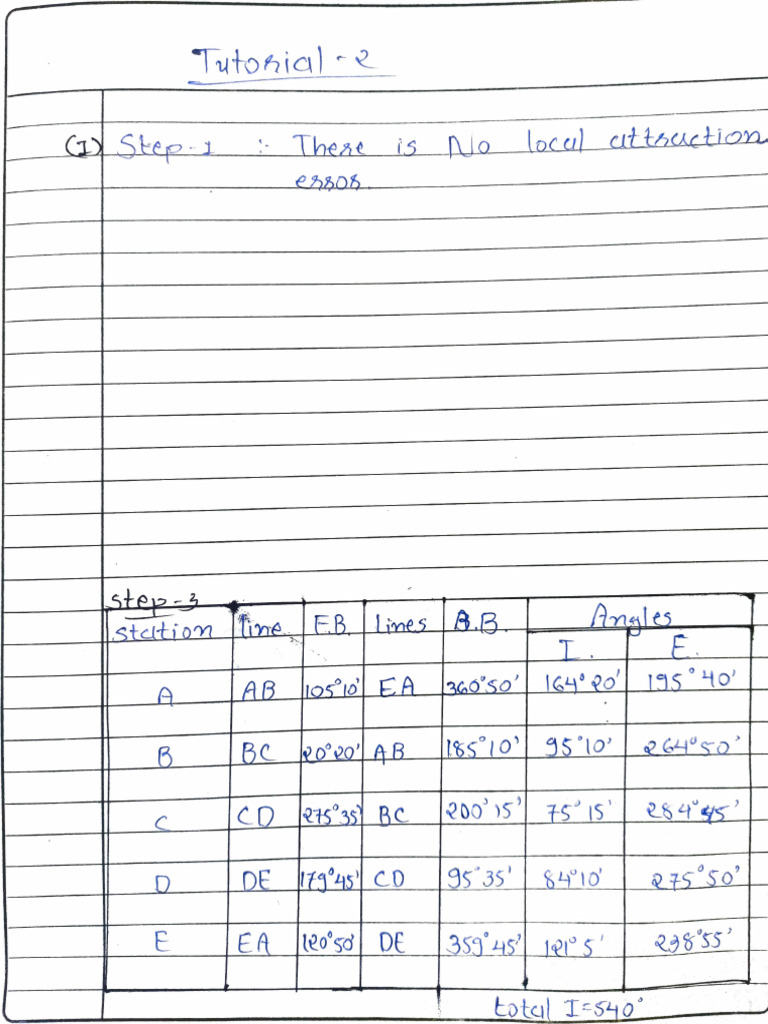 Tutorial - 2
(I) Step-1 :- There is No local attraction
error.
step-3
station line F.B. lines B.B. Angles
I. E.
A AB 105°10' EA 360°50' 164°20' 195°40'
B BC 20°20' AB 185°10' 95°10' 264°50'
C CD 275°35' BC 200°15' 75°15' 284°45'
D DE 179°45' CD 95°35' 84°10' 275°50'
E EA 120°50' DE 359°45' 121°5' 238°55'
total I=540°